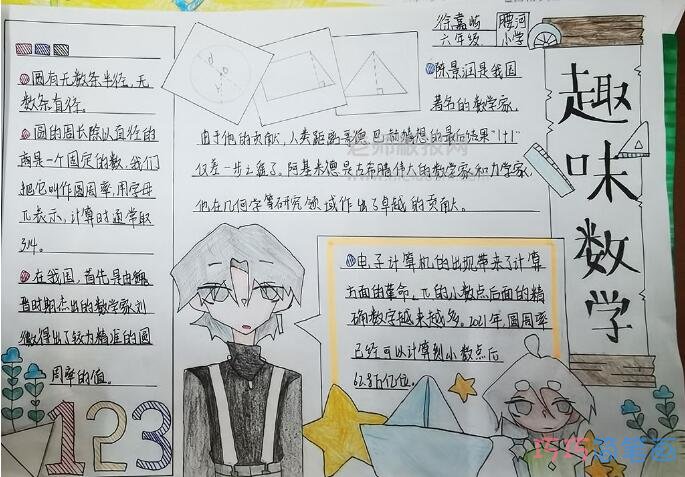 圆有无数条半径，无
数条直径。
圆的周长除以直径的
商是一个固定的数，我们
把它叫作圆周率，用字母
π表示，计算时通常取
3.14。
在我国，首先是由魏
晋时期杰出的数学家刘
徽得出了较为精准的圆
周率的值。
123
徐嘉
腰河
六年级
小学
陈景润是我国
著名的数学家，
由于他的贡献，人类距离哥德巴赫猜想的最后结果"1+1"
仅差一步之遥了。阿基米德是古希腊伟大的数学家和力学家，
他在几何学等研究领域作出了卓越的贡献。
电子计算机的出现带来了计算
方面的革命，π的小数点后面的精
确数字越来越多。2021年，圆周率
已经可以计算到小数点后
62.8万亿位。
趣味数学
老师板报网
巧巧简笔画